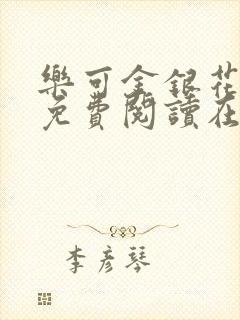 樂可金銀花
免費閱讀在
李彦琴